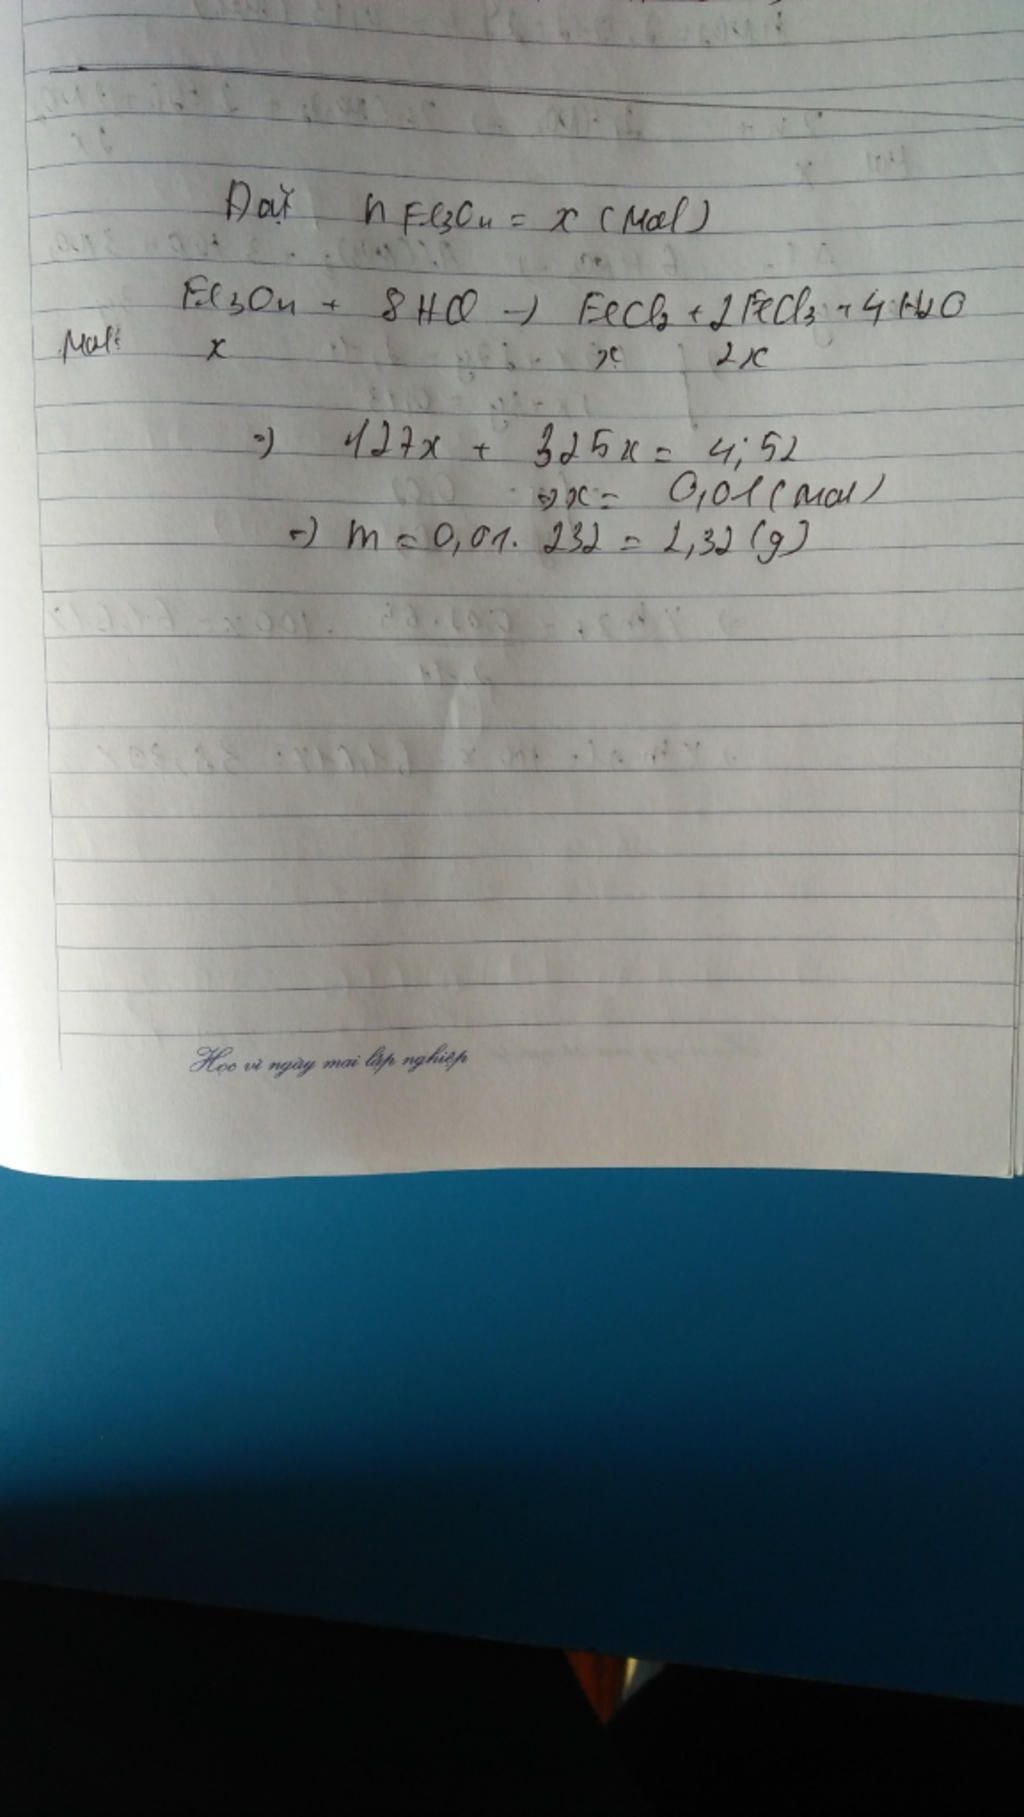 Đặt nFe3O4 = x (mol)
Fe3O4 + 8HCl → FeCl2 + 2FeCl3 + 4H2O
Mol: x x 2x
=> 127x + 325x = 4,52
=> x = 0,01 (mol)
=> m = 0,01. 232 = 2,32 (g)
Học vì ngày mai lập nghiệp